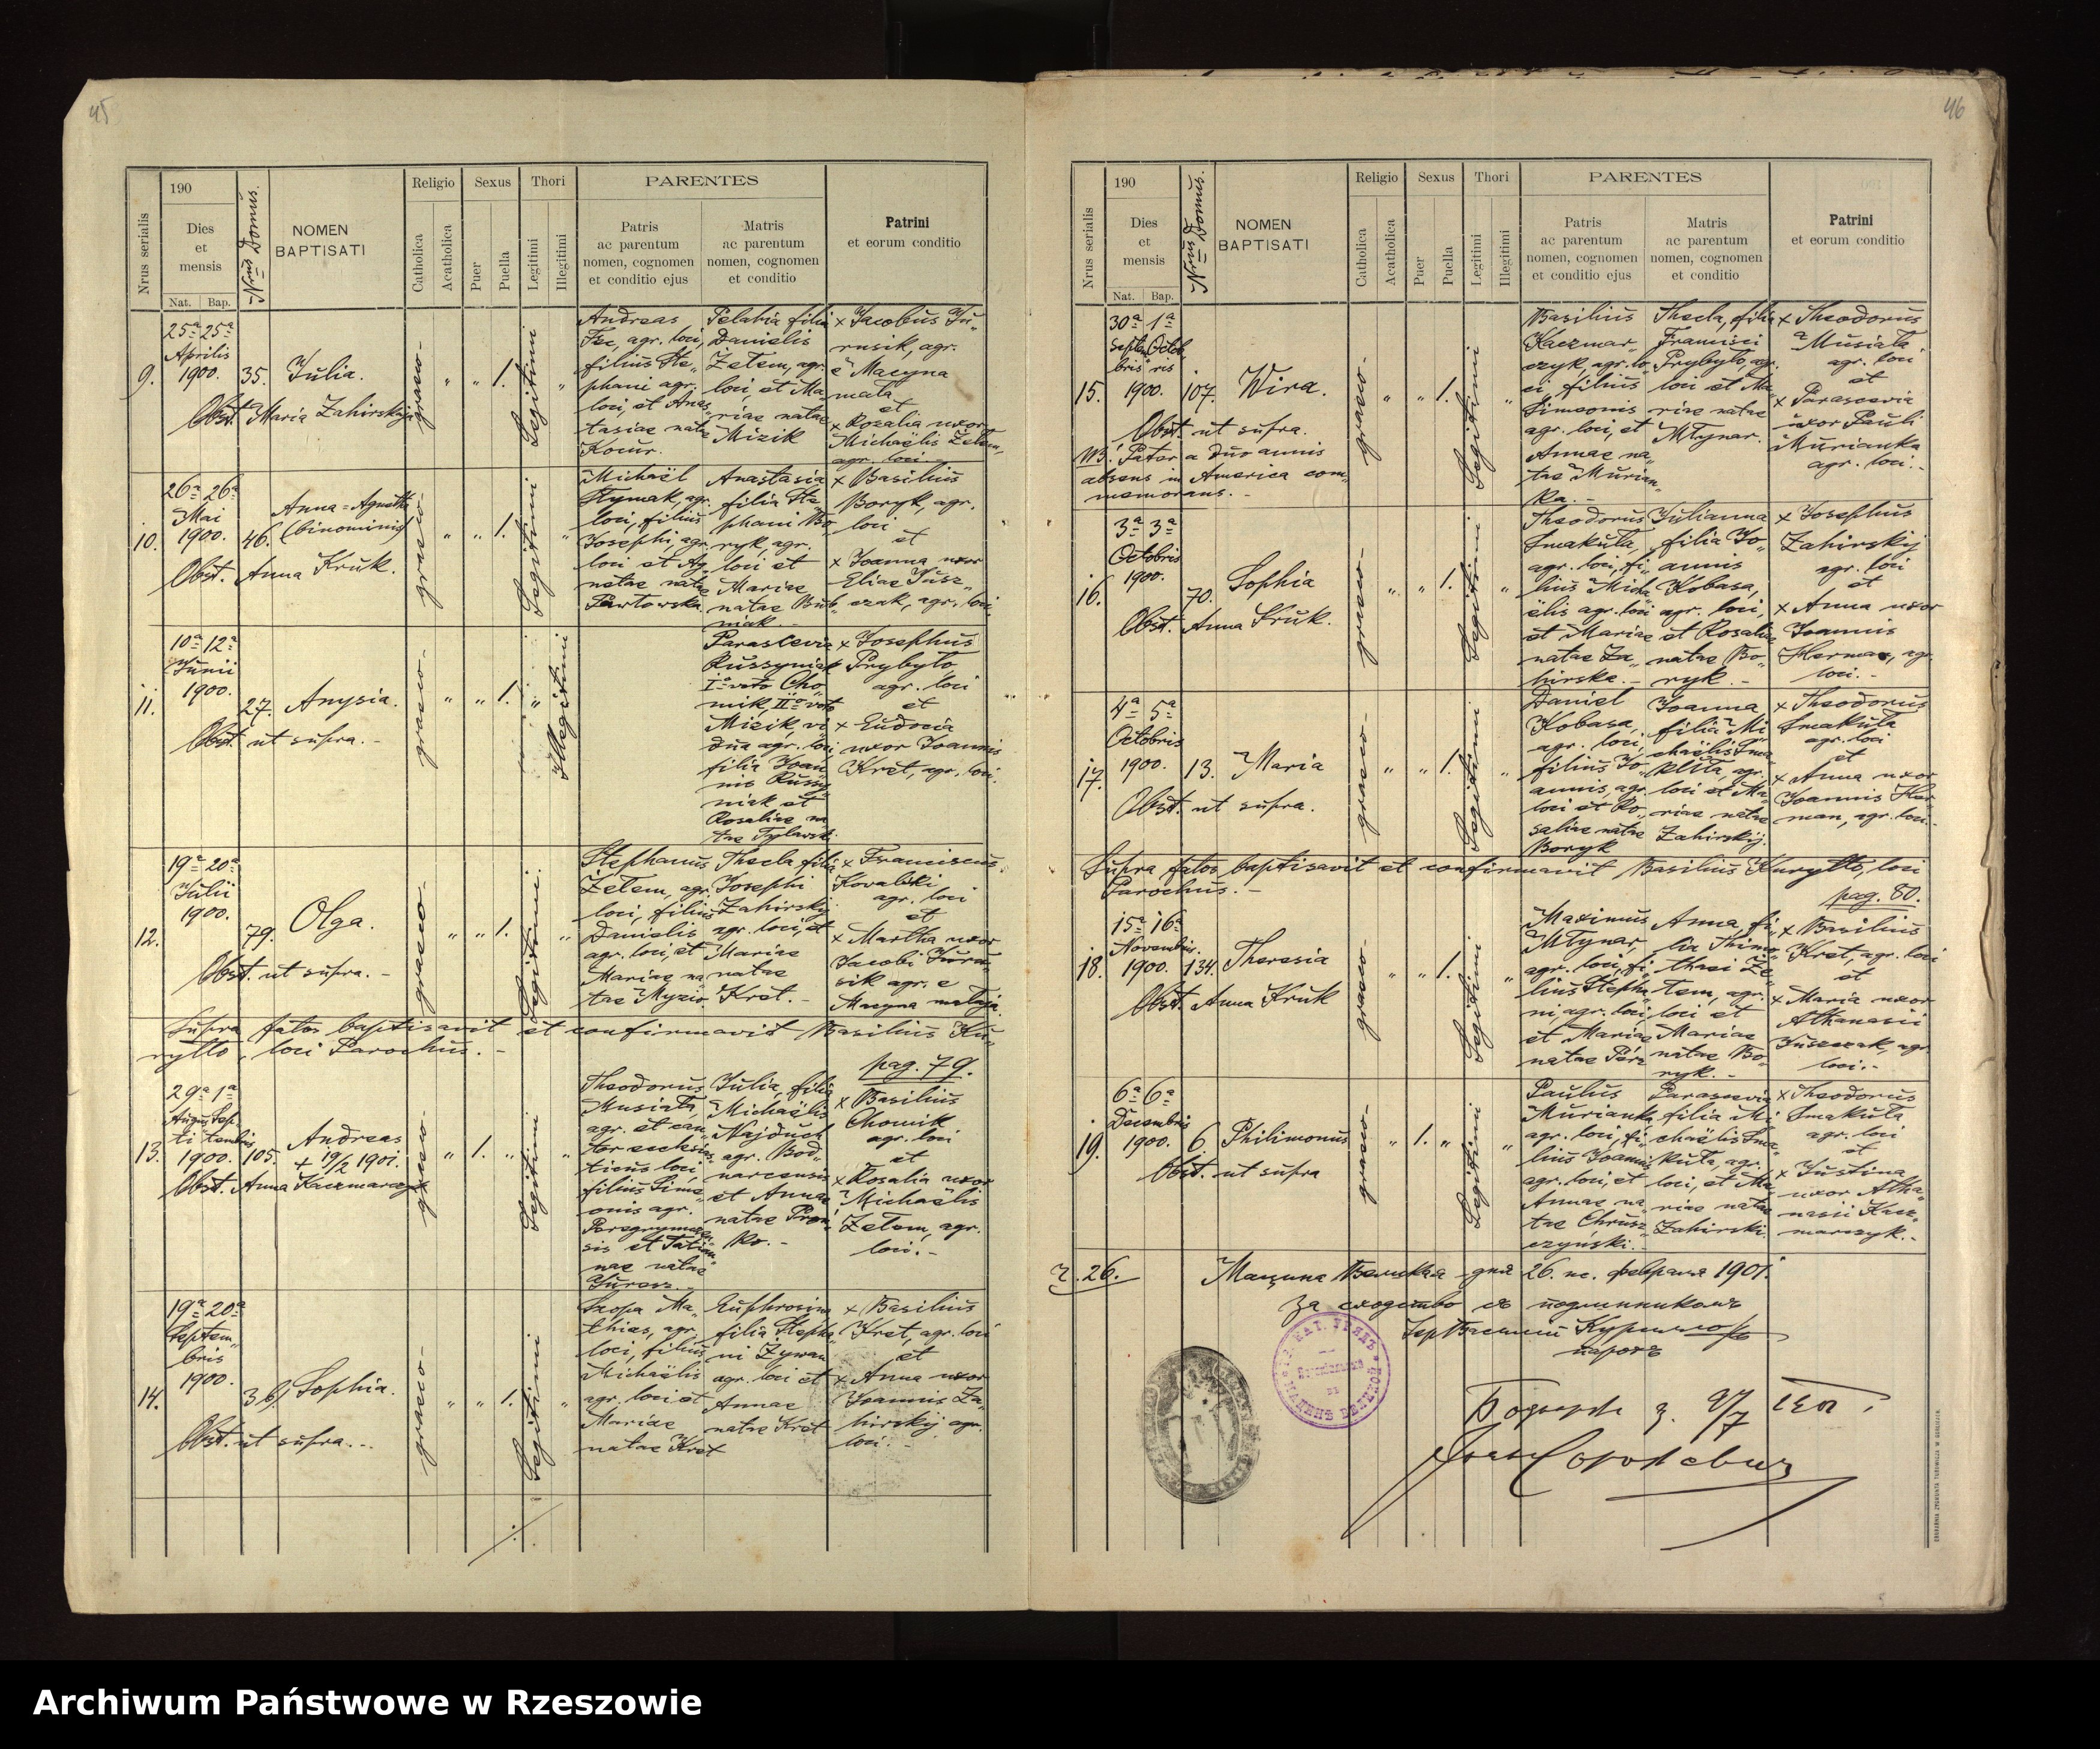 45
190
Nrus serialis
Dies
et
mensis
Nat. Bap.
Nrus Domus.
NOMEN
BAPTISATI
Religio
Catholica
Acatholica
Sexus
Puer
Puella
Thori
Legitimi
Illegitimi
PARENTES
Patris
ac parentum
nomen, cognomen
et conditio ejus
Matris
ac parentum
nomen, cognomen
et conditio
Patrini
et eorum conditio
9.
25ª 25ª
Aprilis
1900.
35.
Julia.
Obst. Maria Zahirskyj
graeco-
„ „ 1.
Legitimi
„
Andreas
agr. loci,
filius Ste„
phani agr.
loci, et Anas„
tasiae natae
Kocur.
Pelahia filia
Danielis
Żetem, agr.
loci, et Ma„
riae natae
Mizik
x Jacobus Ju„
rusik, agr.
è Macyna
mała
et
x Rozalia uxor
Michaëlis Żetem,
agr. loci.
10.
26ª 26ª
Mai
1900.
46.
Anna=Agnetha
(binominis)
Obst. Anna Kruk.
graeco-
„ „ 1.
Legitimi
„
Michaël
Hymak, agr.
loci, filius
Josephi, agr.
loci et Ag„
netae natae
Pawłowska.
Anastasia
filia Ste„
phani Bo„
ryk, agr.
loci et
Mariae
natae Bub„
niak.-
x Basilius
Boryk, agr.
loci
et
x Joanna uxor
Eliae Jusz„
czak, agr. loci
11.
10ª 12ª
Junii
1900.
27.
Anysia.
Obst. ut supra.-
graeco-
„ „ 1. „
Illegitimi
Parascevia
Russyniak
Iº voto Cho„
mik, IIº voto
Mizik, vi„
dua agr. loci,
filia Joan„
nis Russy„
niak et
Rosaliae na„
tae Tylawsk.
x Josephus
Prybyło
agr. loci
et
x Eudocia
uxor Joannis
Kret, agr. loci.
12.
19ª 20ª
Julii
1900.
79.
Olga.
Obst. ut supra.-
graeco-
„ „ 1.
Legitimi.
„
Stephanus
Żetem, agr.
loci, filius
Danielis
agr. loci, et
Mariae na„
tae Myzio.
Thecla, filia
Josephi
Zahirskij
agr. loci, et
Mariae
natae
Kret.-
x Franciscus
Kovalski
agr. loci
et
x Martha uxor
Jacobi Juru„
sik agr. e
Macyna małaja
Supra fatos baptisavit et confirmavit Basilius Ku„
ryłło, loci Parochus.-
pag. 79.
13.
29ª 1ª
Augus Sep„
ti tembris
1900.
105.
Andreas
+ 19/2 1901.
Obst. Anna Kaczmarczyk
graeco-
„ 1. „
Legitimi
„
Theodorus
Musiała,
agr. et can„
tor ecclesias„
ticus loci,
filius Sime„
onis agr.
sis et Tatian„
nae natae
Jurosz
Julia, filia
Michaëlis
Najduch
agr. Bod„
narcensis
et Annae
natae Pron„
ko.-
x Basilius
Chomik
agr. loci
et
x Rosalia uxor
Michaëlis
Żetem, agr.
loci.-
14.
19ª 20ª
Septem„
bris
1900.
36.
Sophia.
Obst. ut supra.-
graeco-
„ „ 1.
Legitimi
„
Szopa Ma„
thias, agr.
loci, filius
Michaëlis
agr. loci et
Mariae
natae Kret
Euphrosina
filia Stepha„
ni Żywan
agr. loci et
Annae
natae Kret
x Basilius
Kret, agr. loci
et
x Anna uxor
Joannis Za„
hirskij agr.
loci.-
46
190
Nrus serialis
Dies
et
mensis
Nat. Bap.
Nrus Domus.
NOMEN
BAPTISATI
Religio
Catholica
Acatholica
Sexus
Puer
Puella
Thori
Legitimi
Illegitimi
PARENTES
Patris
ac parentum
nomen, cognomen
et conditio ejus
Matris
ac parentum
nomen, cognomen
et conditio
Patrini
et eorum conditio
15.
30ª 1ª
Septem Octob„
bris ris
1900.
107.
Wira.
Obst. ut supra.
NB. Pater a duo annis
absens in America com„
memorans.-
graeco-
„ „ 1.
Legitimi
„
Basilius
Kaczmar„
czyk, agr. lo„
ci, filius
Simeonis
agr. loci, et
Annae na„
tae Murian„
ka.-
Thecla, filia
Francisci
Prybyło, agr.
loci et Ma„
riae natae
Młynar.
x Theodorus
Musiała
agr. loci
et
x Parascevia
uxor Pauli
Murianka
agr. loci.-
16.
3ª 3ª
Octobris
1900.
70.
Sophia
Obst. Anna Kruk.
graeco-
„ „ 1.
Legitimi
„
Theodorus
Smakuła,
agr. loci, fi„
lius Micha„
ëlis agr. loci
et Mariae
natae Za„
hirska.-
Julianna
filia Jo„
annis
Kobasa,
agr. loci,
et Rosaliae
natae Bo„
ryk.-
x Josephus
Zahirskij
agr. loci
et
x Anna uxor
Joannis
Herman, agr.
loci.-
17.
4ª 5ª
Octobris
1900.
13.
Maria
Obst. ut supra.
graeco-
„ „ 1.
Legitimi
„
Daniel
Kobasa,
agr. loci,
filius Jo„
annis, agr.
loci et Ro„
saliae natae
Boryk
Joanna,
filia Mi„
chaëlis Sma„
kuła, agr.
loci et Ma„
riae natae
Zahirskij.
x Theodorus
Smakuła
agr. loci
et
x Anna uxor
Joannis Her„
man, agr. loci.-
Supra fatos baptisavit et confirmavit Basilius Kuryłło, loci
Parochus.-
pag. 80.
18.
15ª 16ª
Novembris
1900.
134.
Theresia
Obst. Anna Kruk
graeco-
„ „ 1.
Legitimi
„
Maximus
Młynar,
agr. loci, fi„
lius Stepha„
ni, agr. loci
et Mariae
natae
Anna, fi„
lia Thimo„
thaei Że„
tem, agr.
loci et
Mariae
natae Bo„
ryk.-
x Basilius
Kret, agr. loci
et
x Maria uxor
Athanasii
Juszczak, agr.
loci.-
19.
6ª 6ª
Decembris
1900.
6.
Philimonus
Obst. ut supra
graeco-
„ 1. „
Legitimi
„
Paulus
Murianka
agr. loci, fi„
lius Joannis
agr. loci, et
Annae na„
tae Chrusz„
czyński.-
Parascevia
filia Mi„
chaëlis Sma„
kuła, agr.
loci, et Ma„
riae natae
Zahirski.
x Theodorus
Smakuła
agr. loci
et
x Justina
uxor Atha„
nasii Kacz„
marczyk.-
Ч. 26.
Мацина Велика дня 26. н. февраля 1901.
За сходство съ подлинникомъ
парохъ
Archiwum Państwowe w Rzeszowie